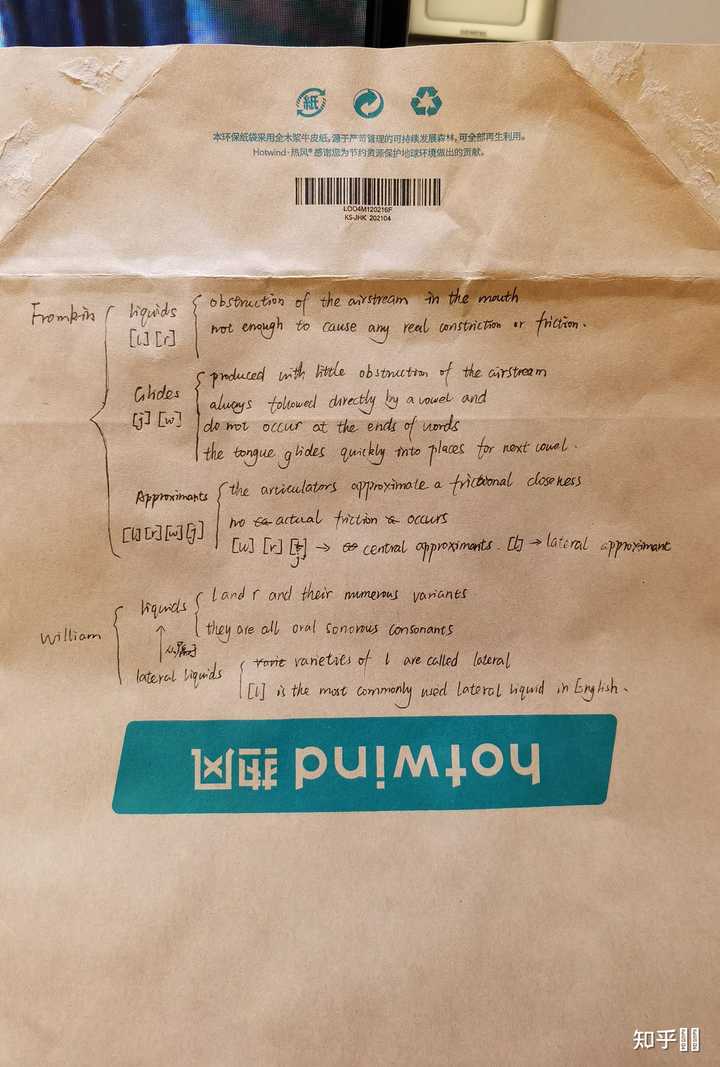 SIEMENS
紙
本环保纸袋采用全木浆牛皮纸,源于严苛管理的可持续发展森林,可全部再生利用。
Hotwind·热风®感谢您为节约资源保护地球环境做出的贡献。
LOO4M120216F
KS-JHK 202104
Fromkin
liquids
[l] [r]
obstruction of the airstream in the mouth
not enough to cause any real constriction or friction.
Glides
[j] [w]
produced with little obstruction of the airstream
always followed directly by a vowel and
do not occur at the ends of words
the tongue glides quickly into places for next vowel.
Approximants
[l] [r] [w] [j]
the articulators approximate a frictional closeness
no actual friction occurs
[w] [r] [j] → central approximants. [l] → lateral approximant
William
liquids
l and r and their numerous variants
they are all oral sonorous consonants
从属于
lateral liquids
varieties of l are called lateral
[l] is the most commonly used lateral liquid in English.
hotwind 热风
知乎